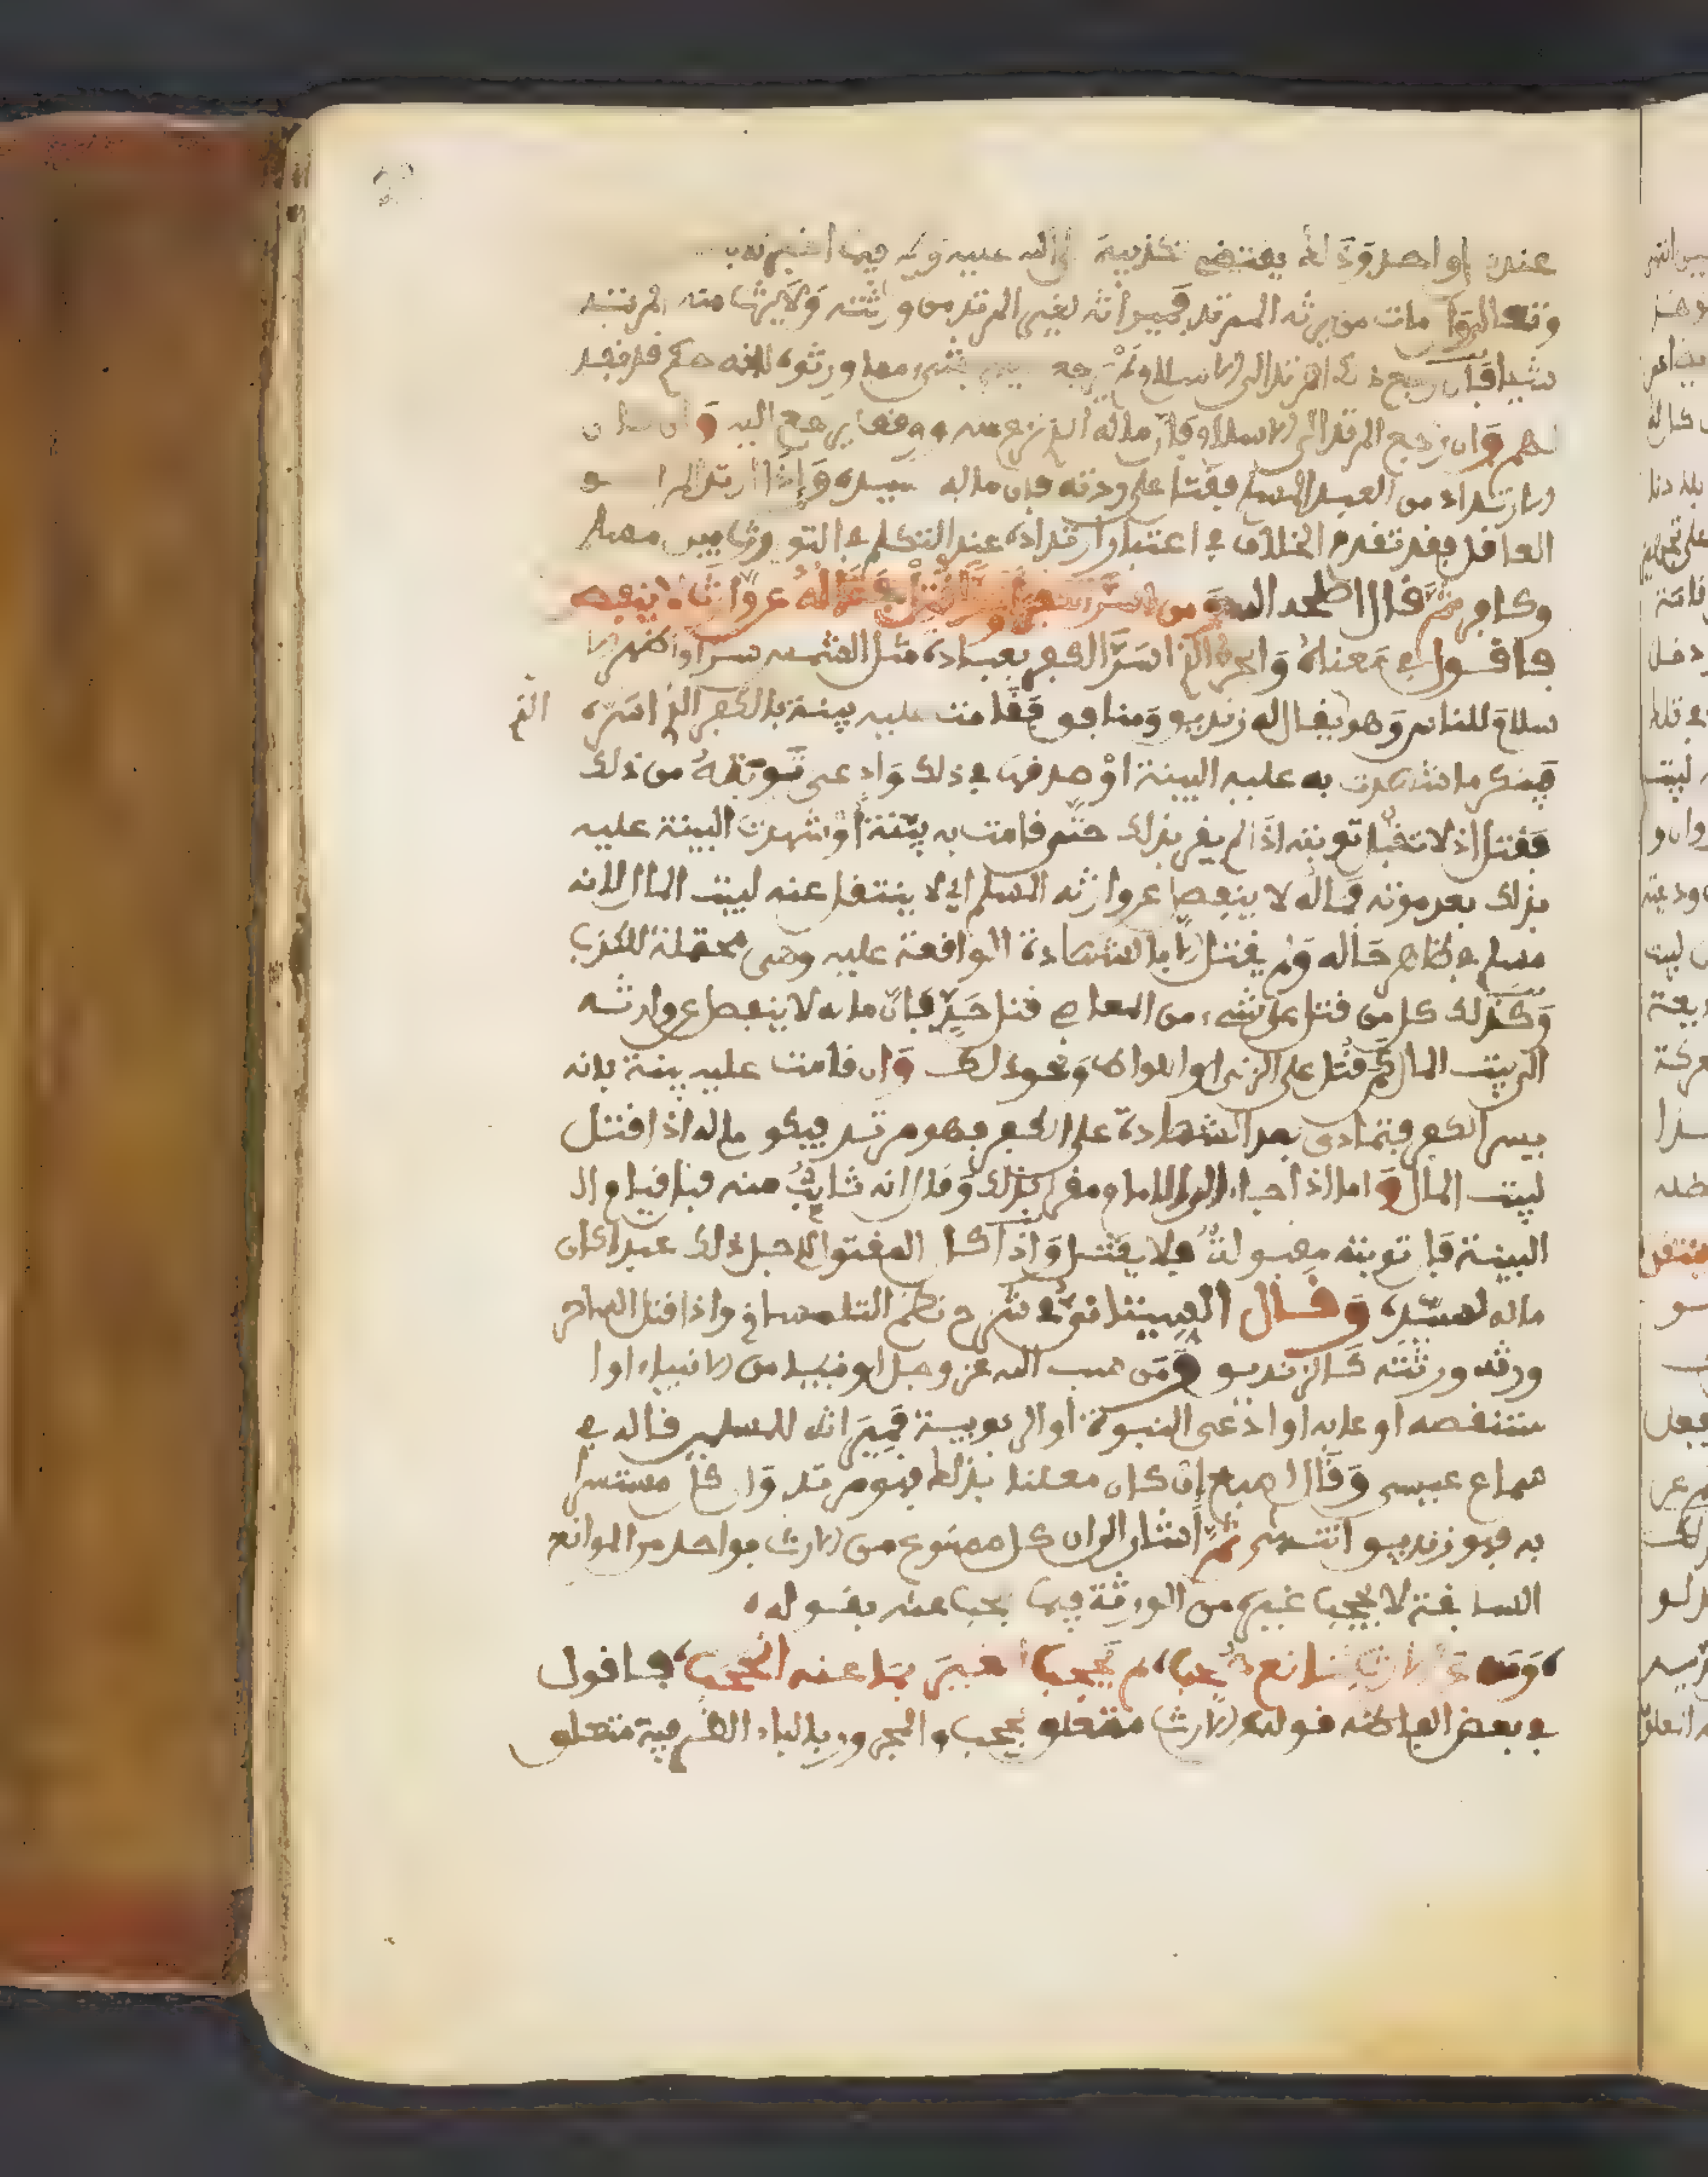 عنده او احد وذلك يقتضي تكذيبه صلى الله عليه فيما اخبر به
مات من يرثه المرتد فميراثه لغير المرتد من ورثته ولا يرث منه المرتد
شيا فان رجع ذلك المرتد الى الاسلام لم يرجع بشيء مما ورثوه لانه حكم قد نفذ
لهم وان رجع المرتد الى الاسلام فان ماله الذي نزع منه ووقف يرجع اليه وان كان
الارتداد من العبد المسلم فقتل على ردته فان ماله لسيده واذا ارتد
العاقل فقد تقدم الخلاف في اعتبار ارتداده عند التكلم في التوارث بين مسلم
وكافر ثم قال اصلحه الله ومن اسر فماله عن وارثه لا ينفصل
فاقول في معناه وان الذي اسر الكفر بعبادة مثل الشمس سرا واظهر الا
سلام للناس وهو يقال له زنديق ومنافق فقامت عليه بينة بالكفر الذي اسره الذي
فينكر ما شهدت به عليه البينة او صدقها في ذلك وادعى توبته من ذلك
فقتل اذ لا تقبل توبته اذا لم يقر بذلك حتى قامت به بينة او شهدت البينة عليه
بذلك بعد موته فماله لا ينفصل عن وارثه المسلم اي لا ينتقل عنه لبيت المال لانه
مسلم في ظاهر حاله ولم يقتل الا بالشهادة الواقعة عليه وهي محتملة للكذب
وكذلك كل من قتل على شيء من المعاصي قتل حد فان ماله لا ينفصل عن وارثه
الى بيت المال كمن قتل على الزنى او اللواط ونحو ذلك وان قامت عليه بينة بانه
يسر الكفر فتمادى بعد الشهادة على الكفر فهو مرتد فيكون ماله اذا قتل
لبيت المال واما اذا جاء الى الامام مقرا بذلك وقال انه تائب منه قبل قيام ال
البينة فان توبته مقبولة فلا يقتل واذا كان المقتول لاجل ذلك عبدا كان
ماله لسيده وقال العصنوني في شرح نظم التلمساني واذا قتل الساحر
ورثه ورثته كالزنديق ومن سب الله عز وجل او نبيا من الانبياء او ا
ستنقصه او عابه او ادعى النبوة او الربوبية فميراثه للمسلمين قاله في
سماع عيسى وقال اصبغ ان كان معلنا بذلك فهو مرتد وان كان مستسرا
به فهو زنديق انتهى ثم اشار الى ان كل ممنوع من الارث بواحد من الموانع
السابقة لا يحجب غيره من الورثة فيما يحجب عنه بقوله
ومن عن الارث بمانع حجب لم يحجب الغير بما عنه انحجب فاقول
في بعض الفاظه قوله الارث متعلق بحجب والمجرور بالباء الظرفية متعلق